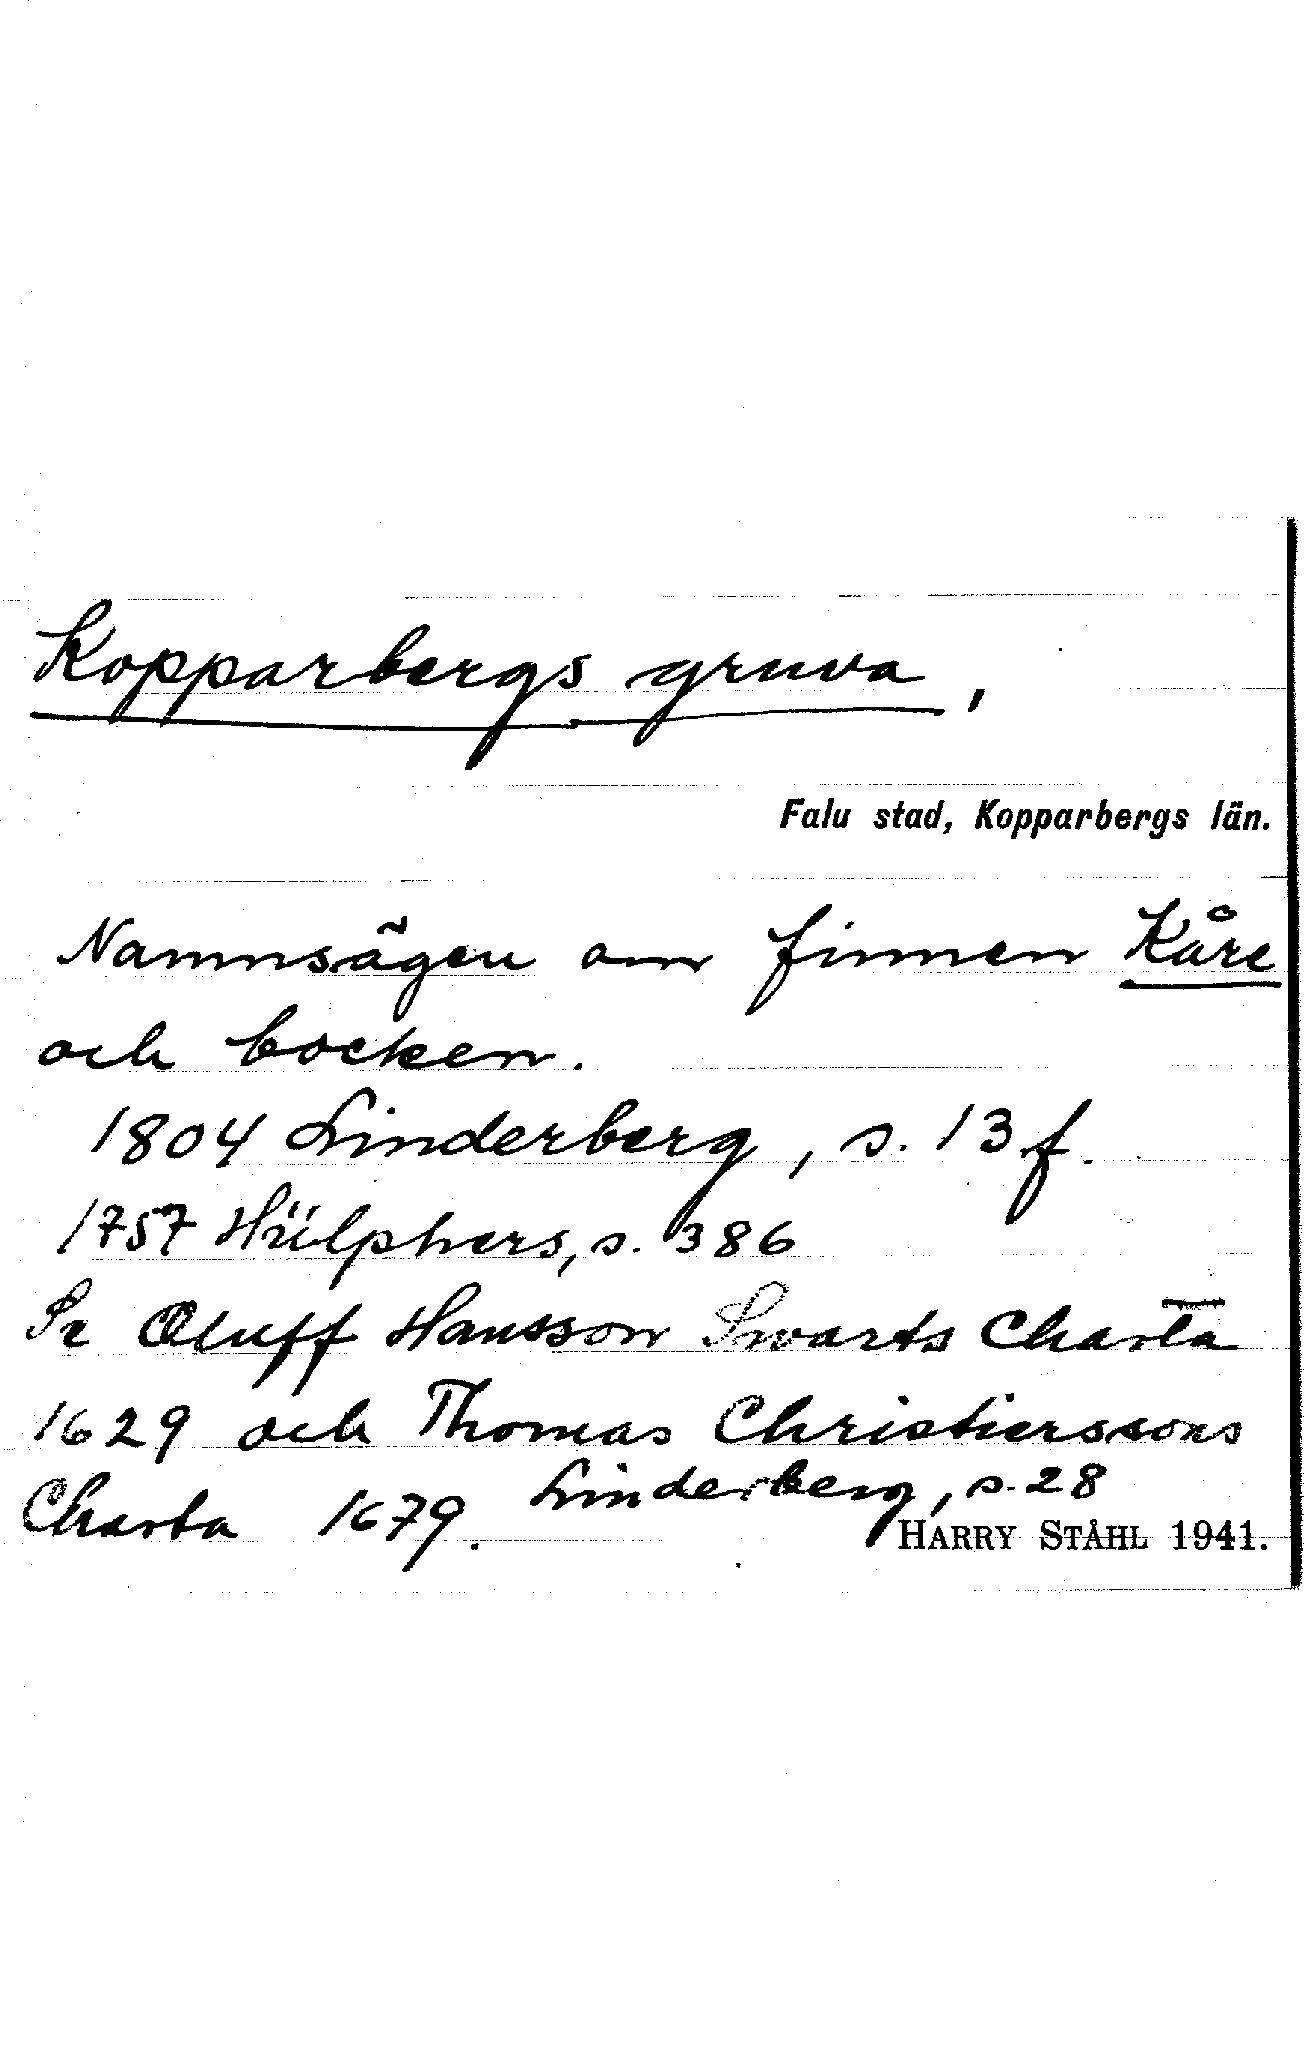 Kopparbergs gruva,
Falu stad, Kopparbergs län.
Namnsägen om finnen Kåre
och bocken.
1804 Linderberg, s. 13 f.
1757 Hülphers, s. 386
Se Oluff Hansson Swarts Charta
1629 och Thomas Christierssons
Charta 1679. Linderberg, s. 28
HARRY STÅHL 1941.